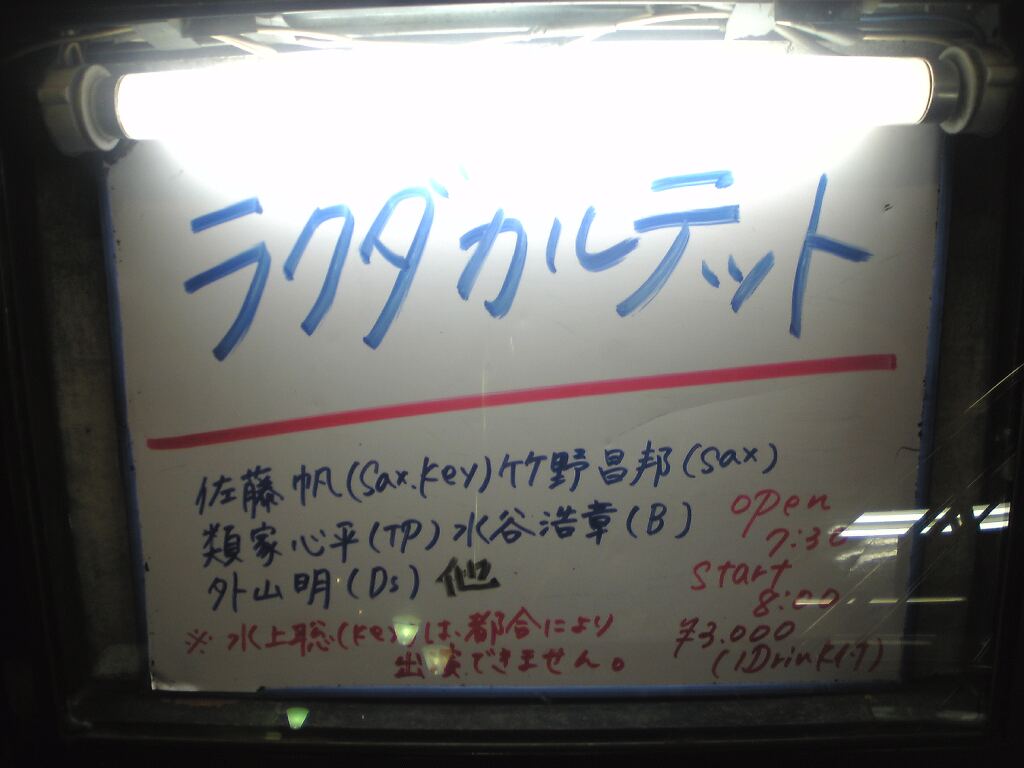 ラクダカルテット
佐藤 帆(Sax.Key)竹野昌邦(Sax)
類家心平(TP)水谷浩章(B)
外山明(Ds)他
open
7:30
start
8:00
¥3.000
(1Drink付)
※水上聡(key)は、都合により
出演できません。